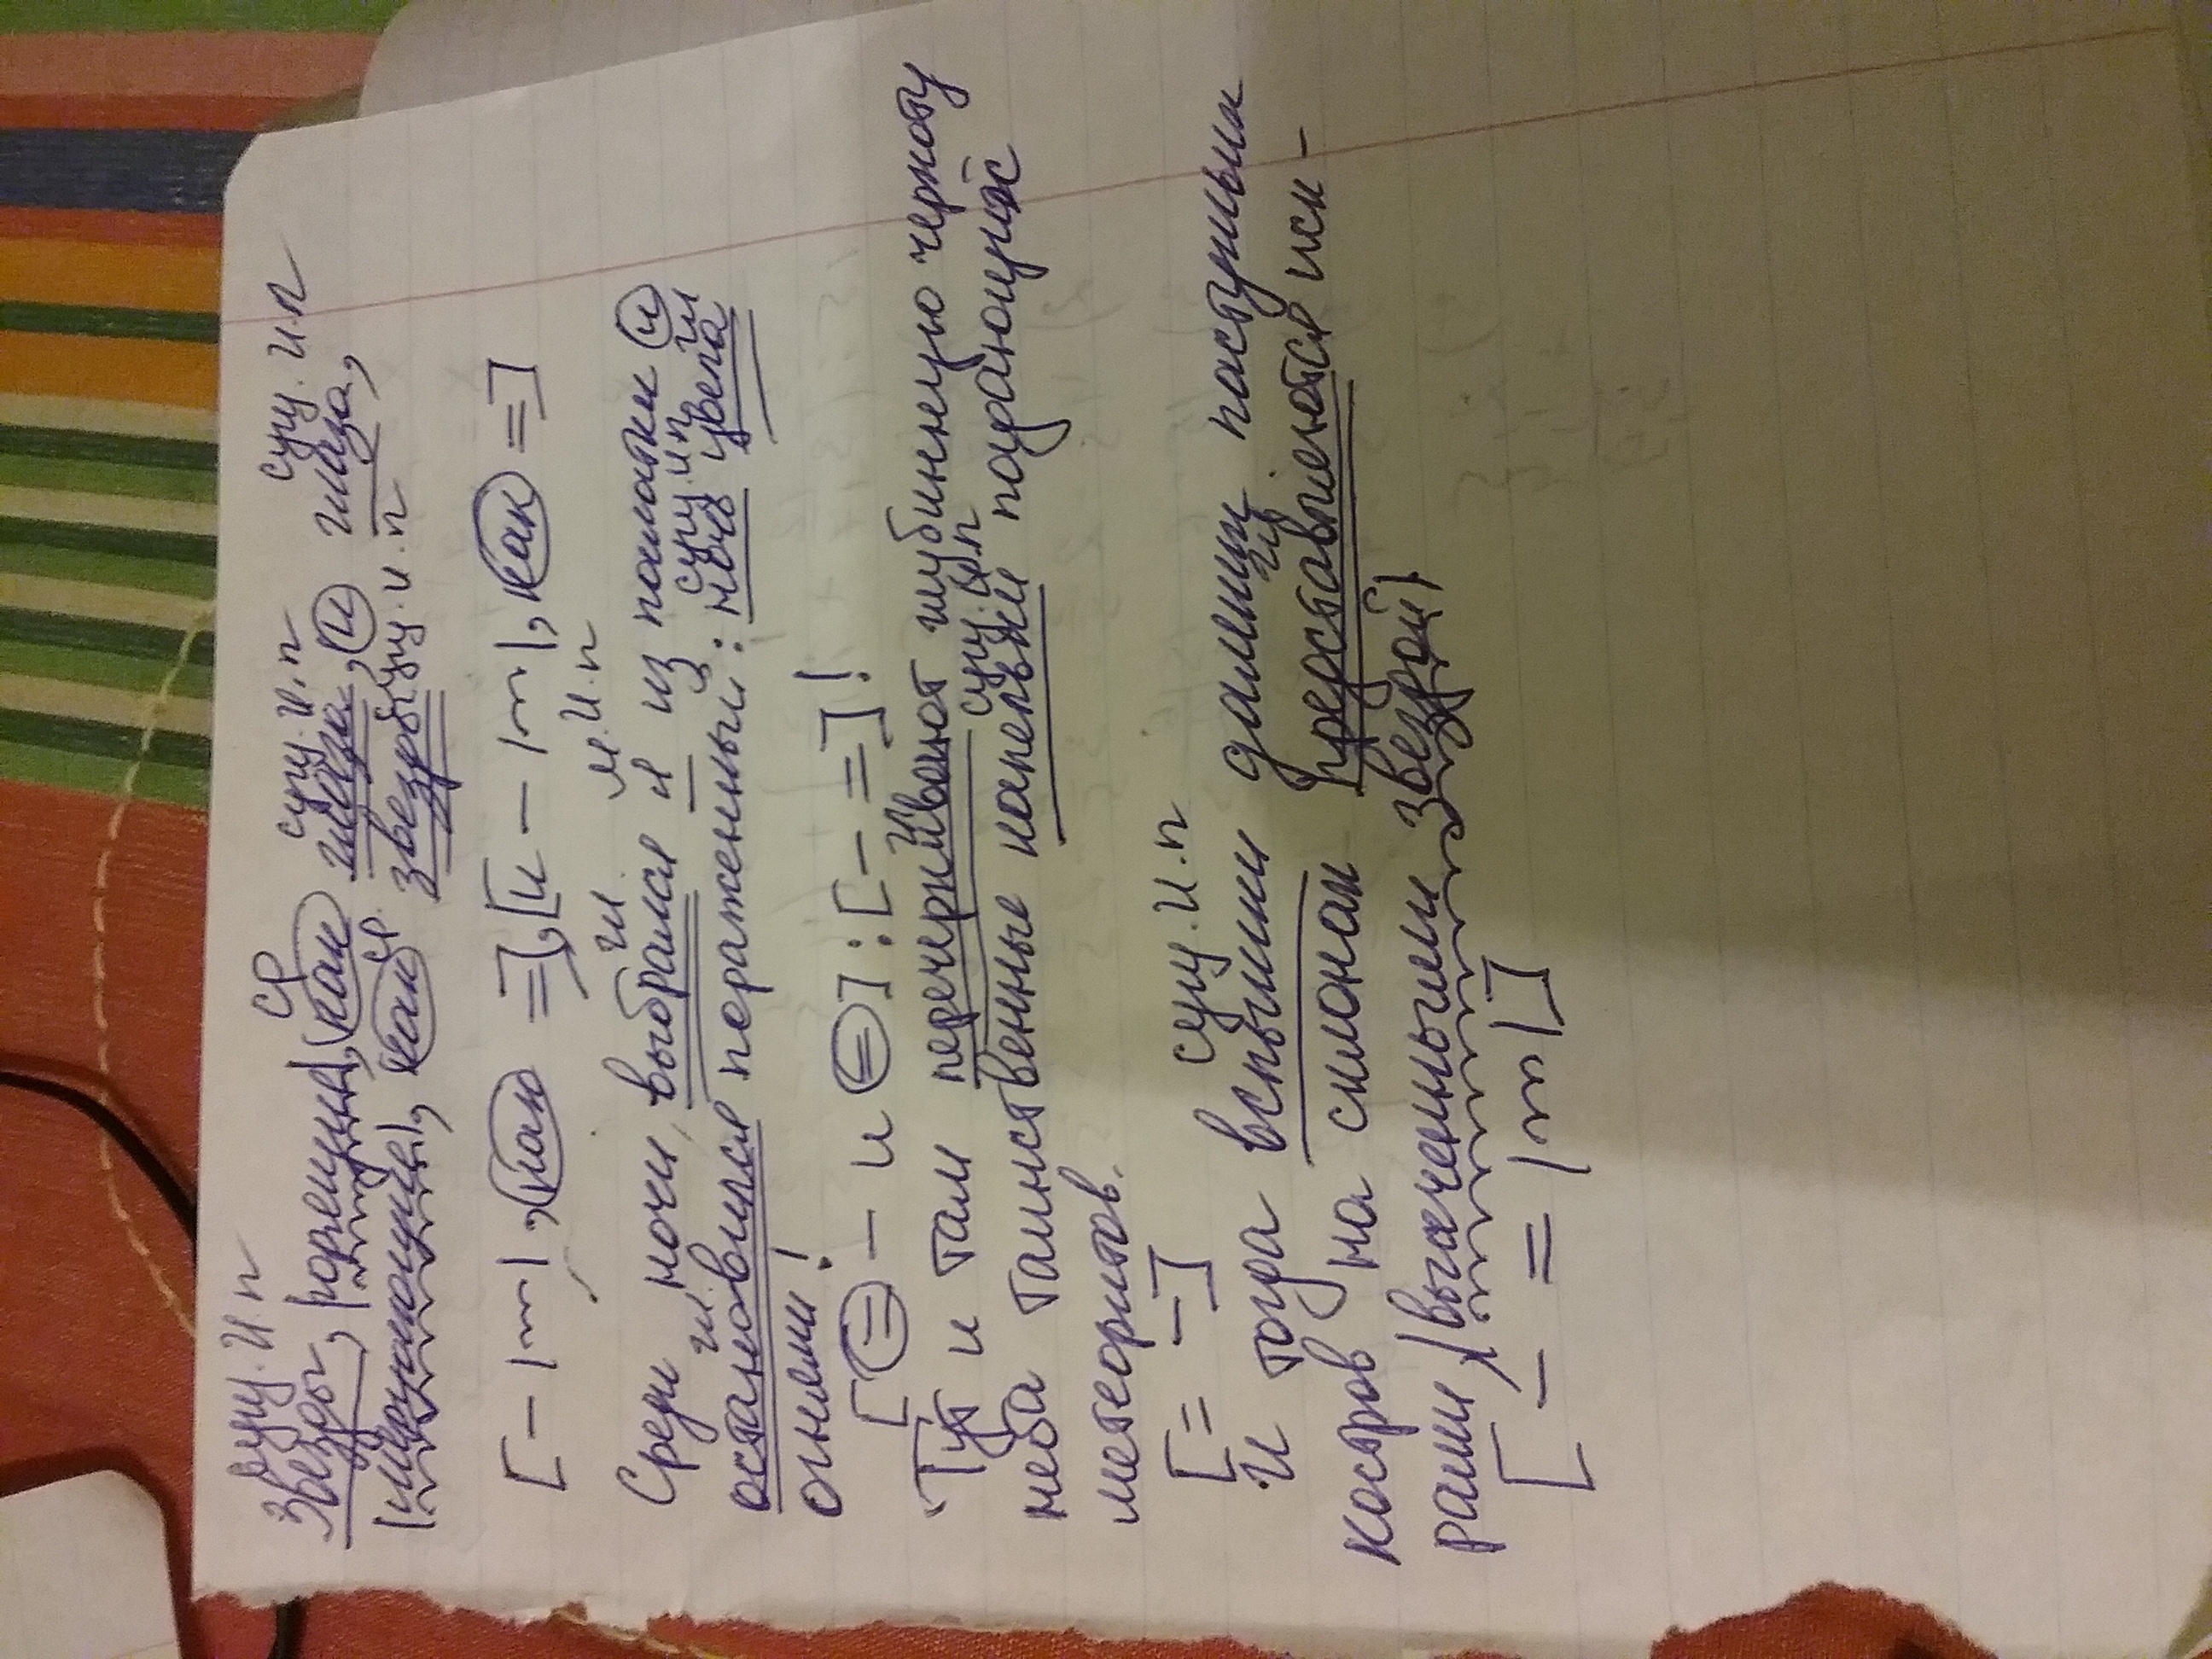 сущ. И.п ср сущ. и.п сущ. И.п
Звезды, |горящие|, как глаза, и глаза,
|мерцающие|, как ср. звезды сущ. и.п
[– |~|, как =], [и – |~|, как =]
гл. м. И.п
Среди ночи выбрался я из палатки и
гл. сущ. и.п гл
остановился пораженный: ночь цвела
огнями!
[= – и =] : [– =]!
гл.
Тут и там перечеркивают глубинную черноту
сущ. И.п
неба таинственные капельки падающих
метеоритов.
[= –]
сущ. И.п
И тогда вспышки дальних пастушьих
гл.
костров на склонах представляются иск-
рами, |высеченными звездой|
[– = |~|]